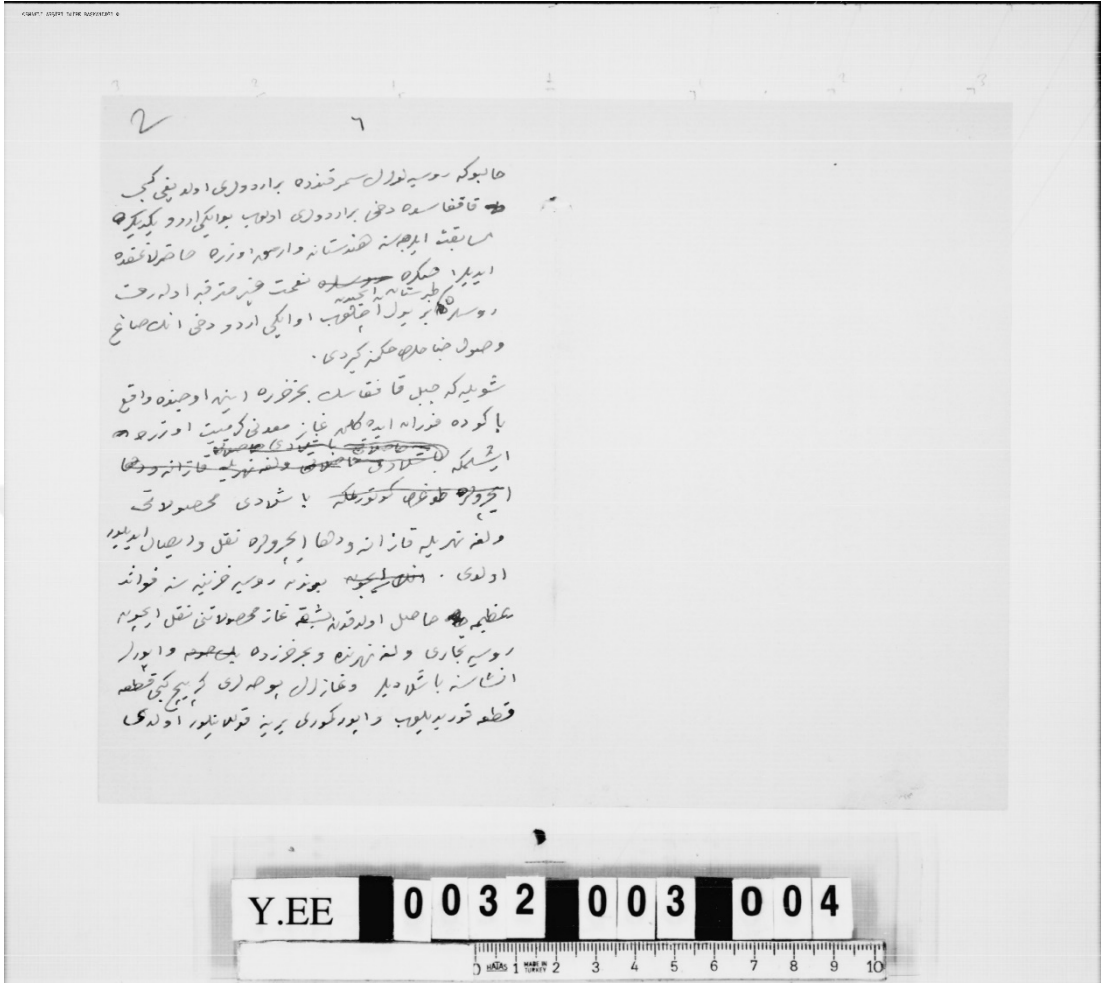 2
٦
حالبوكه روسيه لولرك سمرقندده بر اردولرى اولديغى كبى
قافقاسده دخى بر اردولرى اولوب بو ايكى اردو يكديكره
مسابقت ايدرجه سنه هندستانه وارمق اوزره حاضرلانمقده
ايديلر
نعمت غير مترقبه اوله رق
طبرستان
روسلره بر يول آچيلوب او ايكى اردو دخى انك صاغ
وصول جناحلرى حكمنه كيردى .
شويله كه جبل قافقاسك بحر خزره اينن اوجنده واقع
باكوده فوران ايدن غاز معدنى كرميت اوزره
ايشلمكه
باشلادى محصولاتى
ولغه نهريله قازانه و دها ايچرولره نقل و ايصال ايديلور
اولدى . بوندن روسيه خزينه سنه فوائد
عظيمه حاصل اولدقدن بشقه غاز محصولاتنى نقل ايچون
روسيه تجارى ولغه نهرنده و بحر خزرده واپورلر
انشاسنه باشلاديلر وغازلرك پوصه لرى كرپيچ كبى قطعه
قطعه قوريديلوب واپور كومورى يرينه قوللانيلور اولدى
Y.EE 0032 003 004
0 HATAS 1 MADE IN TURKEY 2 3 4 5 6 7 8 9 10